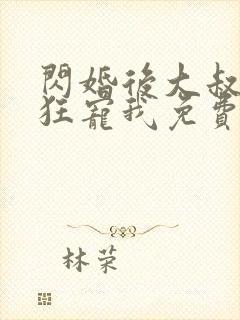 閃婚後大叔
狂寵我免費
林荣